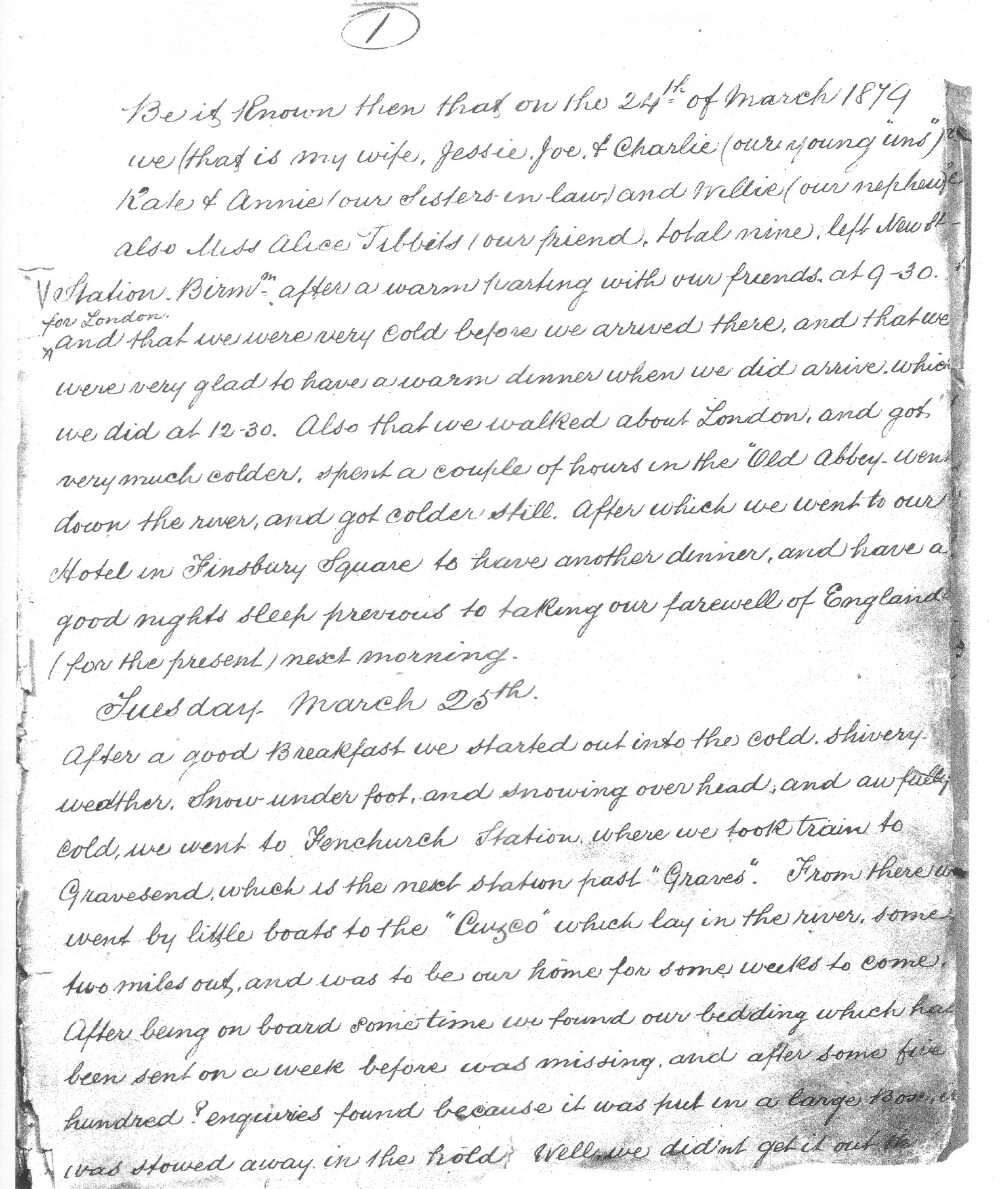 1
Be it Known then that on the 24th of March 1879
we (that is my wife, Jessie, Joe, & Charlie (our young "uns")
Kate & Annie (our Sisters-in-law) and Willie (our nephew)
also Miss Alice Tibbits (our friend, total nine, left New St-
Station. Birmm. after a warm parting with our friends, at 9-30.
for London.
and that we were very cold before we arrived there, and that we
were very glad to have a warm dinner when we did arrive. which
we did at 12-30. Also that we walked about London, and got
very much colder, spent a couple of hours in the "Old Abbey- went
down the river, and got colder still. After which we went to our
Hotel in Finsbury Square to have another dinner, and have a
good nights sleep previous to taking our farewell of England
(for the present) next morning.
Tuesday March 25th.
After a good Breakfast we started out into the cold, shivery
weather. Snow under foot, and snowing over head, and awfully
cold, we went to Fenchurch Station, where we took train to
Gravesend, which is the next station past "Graves". From there we
went by little boats to the "Cuzco" which lay in the river, some
two miles out, and was to be our home for some weeks to come.
After being on board some time we found our bedding which had
been sent on a week before was missing, and after some five
hundred ? enquiries found because it was put in a large Box, it
was stowed away in the hold. Well, we did'nt get it out